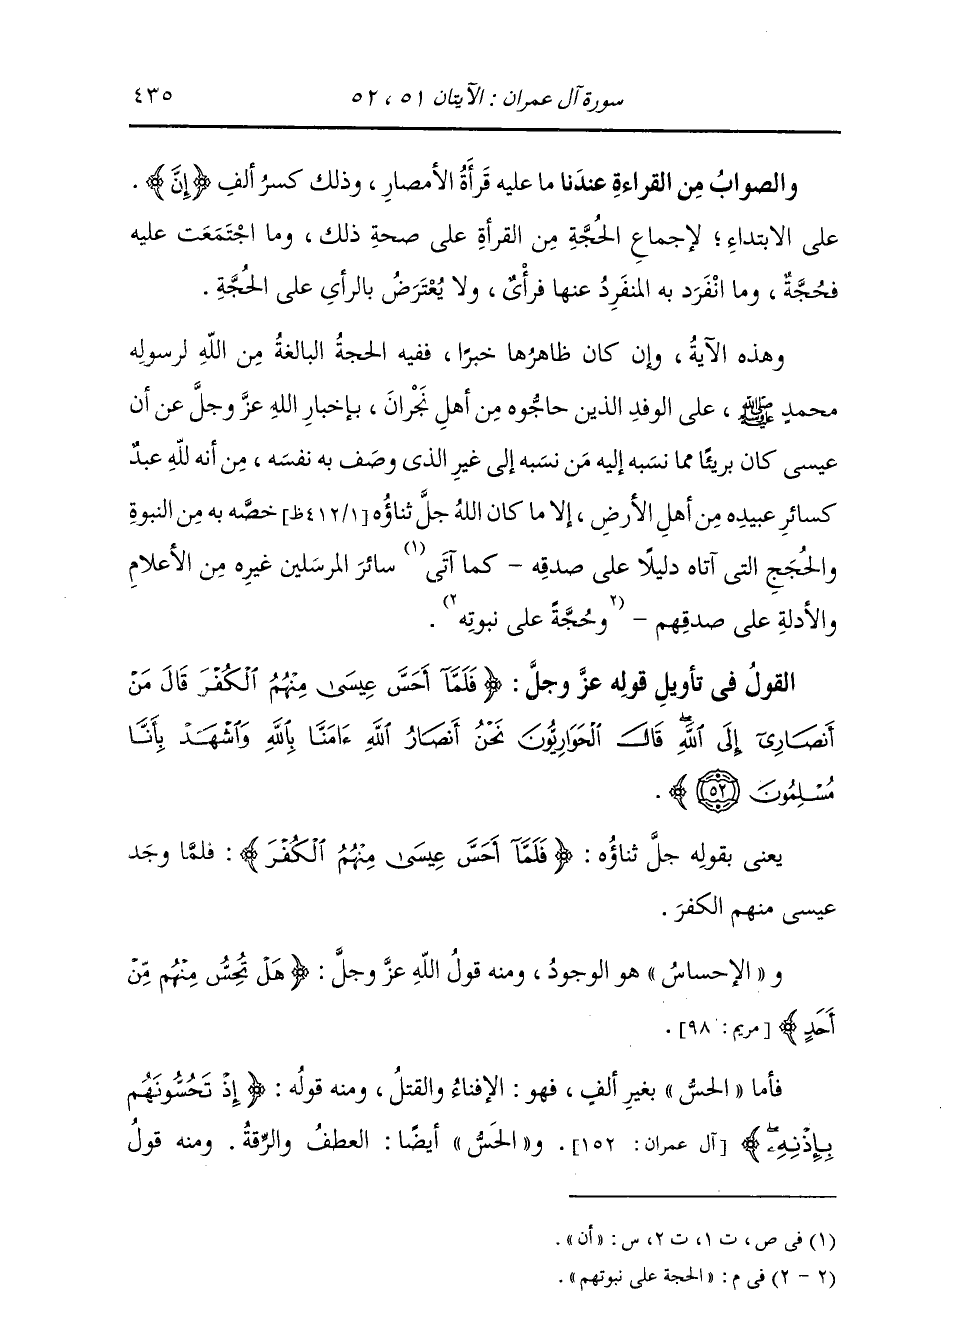 سورة آل عمران : الآيتان ٥١ ، ٥٢ ٤٣٥
والصوابُ مِن القراءةِ عندَنا ما عليه قَرَأَةُ الأمصارِ ، وذلك كسرُ ألفِ ﴿ إِنَّ ﴾ .
على الابتداءِ ؛ لإجماعِ الحُجَّةِ مِن القرأةِ على صحةِ ذلك ، وما اجْتَمَعَت عليه
فحُجَّةٌ ، وما انْفَرَد به المنفَرِدُ عنها فرأْىٌ ، ولا يُعْتَرَضُ بالرأيِ على الحُجَّةِ .
وهذه الآيةُ ، وإن كان ظاهرُها خبرًا ، ففيه الحجةُ البالغةُ مِن اللَّهِ لرسولِه
محمدٍ ﷺ ، على الوفدِ الذين حاجُّوه مِن أهلِ نَجْرانَ ، بإخبارِ اللهِ عزَّ وجلَّ عن أن
عيسى كان بريئًا مما نسَبه إليه مَن نسَبه إلى غيرِ الذى وصَف به نفسَه ، مِن أنه للَّهِ عبدٌ
كسائرِ عبيدِه مِن أهلِ الأرضِ ، إلا ما كان اللهُ جلَّ ثناؤُه [٤١٢/١ظ] خصَّه به مِن النبوةِ
والحُجَجِ التى آتاه دليلًا على صدقِه – كما آتَى (١) سائرَ المرسَلين غيرِه مِن الأعلامِ
والأدلةِ على صدقِهم – (٢ وحُجَّةً على نبوتِه ٢) .
القولُ فى تأويلِ قولِه عزَّ وجلَّ : ﴿ فَلَمَّآ أَحَسَّ عِيسَىٰ مِنْهُمُ ٱلْكُفْرَ قَالَ مَنْ
أَنصَارِىٓ إِلَى ٱللَّهِۖ قَالَ ٱلْحَوَارِيُّونَ نَحْنُ أَنصَارُ ٱللَّهِ ءَامَنَّا بِٱللَّهِ وَٱشْهَدْ بِأَنَّا
مُسْلِمُونَ ٥٢ ﴾ .
يعنى بقولِه جلَّ ثناؤُه : ﴿ فَلَمَّآ أَحَسَّ عِيسَىٰ مِنْهُمُ ٱلْكُفْرَ ﴾ : فلمَّا وجَد
عيسى منهم الكفرَ .
و « الإحساسُ » هو الوجودُ ، ومنه قولُ اللَّهِ عزَّ وجلَّ : ﴿ هَلْ تُحِسُّ مِنْهُم مِّنْ
أَحَدٍ ﴾ [مريم : ٩٨] .
فأما « الحَسُّ » بغيرِ ألفٍ ، فهو : الإفناءُ والقتلُ ، ومنه قولُه : ﴿ إِذْ تَحُسُّونَهُم
بِإِذْنِهِۦۖ ﴾ [آل عمران : ١٥٢] . و« الحَسُّ » أيضًا : العطفُ والرِّقةُ . ومنه قولُ
(١) فى ص ، ت ١، ت ٢، س : «أن» .
(٢ – ٢) فى م : «الحجة على نبوتهم» .